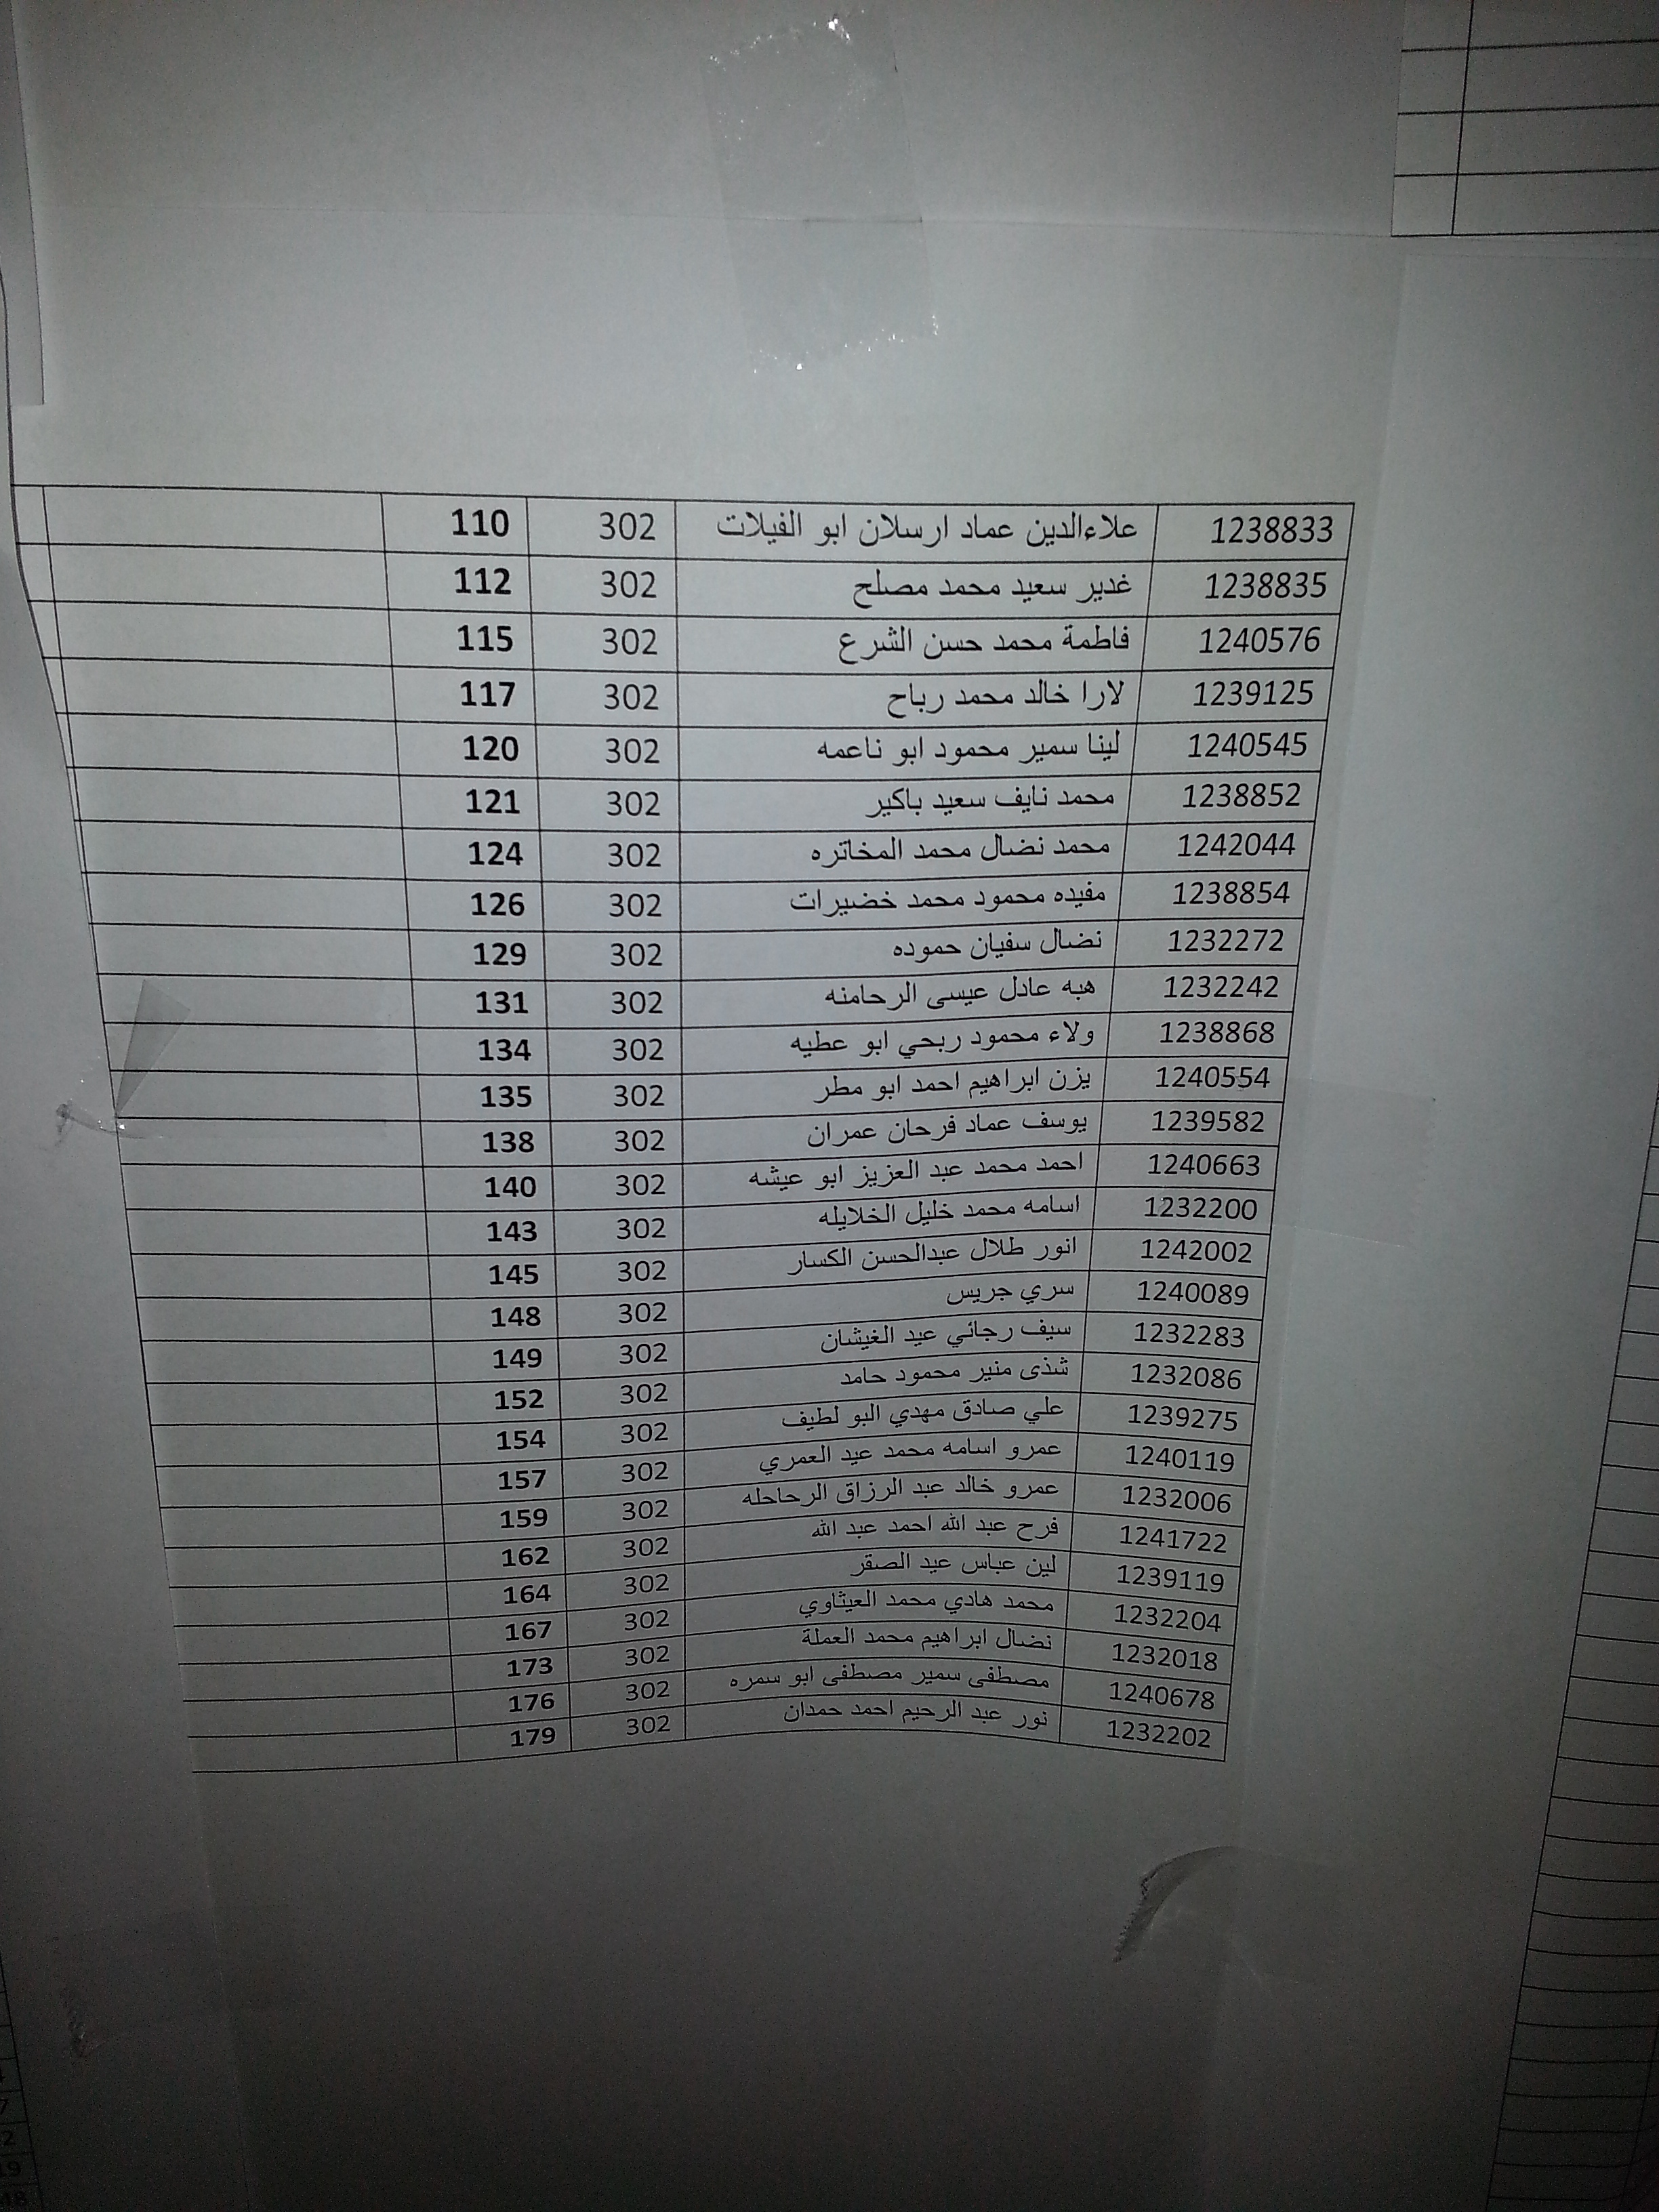 1238833 علاءالدين عماد ارسلان ابو الفيلات 302 110
1238835 غدير سعيد محمد مصلح 302 112
1240576 فاطمة محمد حسن الشرع 302 115
1239125 لارا خالد محمد رباح 302 117
1240545 لينا سمير محمود ابو ناعمه 302 120
1238852 محمد نايف سعيد باكير 302 121
1242044 محمد نضال محمد المخاتره 302 124
1238854 مفيده محمود محمد خضيرات 302 126
1232272 نضال سفيان حموده 302 129
1232242 هبه عادل عيسى الرحامنه 302 131
1238868 ولاء محمود ربحي ابو عطيه 302 134
1240554 يزن ابراهيم احمد ابو مطر 302 135
1239582 يوسف عماد فرحان عمران 302 138
1240663 احمد محمد عبد العزيز ابو عيشه 302 140
1232200 اسامه محمد خليل الخلايله 302 143
1242002 انور طلال عبدالحسن الكسار 302 145
1240089 سري جريس 302 148
1232283 سيف رجائي عيد الغيشان 302 149
1232086 شذى منير محمود حامد 302 152
1239275 علي صادق مهدي البو لطيف 302 154
1240119 عمرو اسامه محمد عيد العمري 302 157
1232006 عمرو خالد عبد الرزاق الرحاحله 302 159
1241722 فرح عبد الله احمد عبد الله 302 162
1239119 لين عباس عيد الصقر 302 164
1232204 محمد هادي محمد العيثاوي 302 167
1232018 نضال ابراهيم محمد العملة 302 173
1240678 مصطفى سمير مصطفى ابو سمره 302 176
1232202 نور عبد الرحيم احمد حمدان 302 179